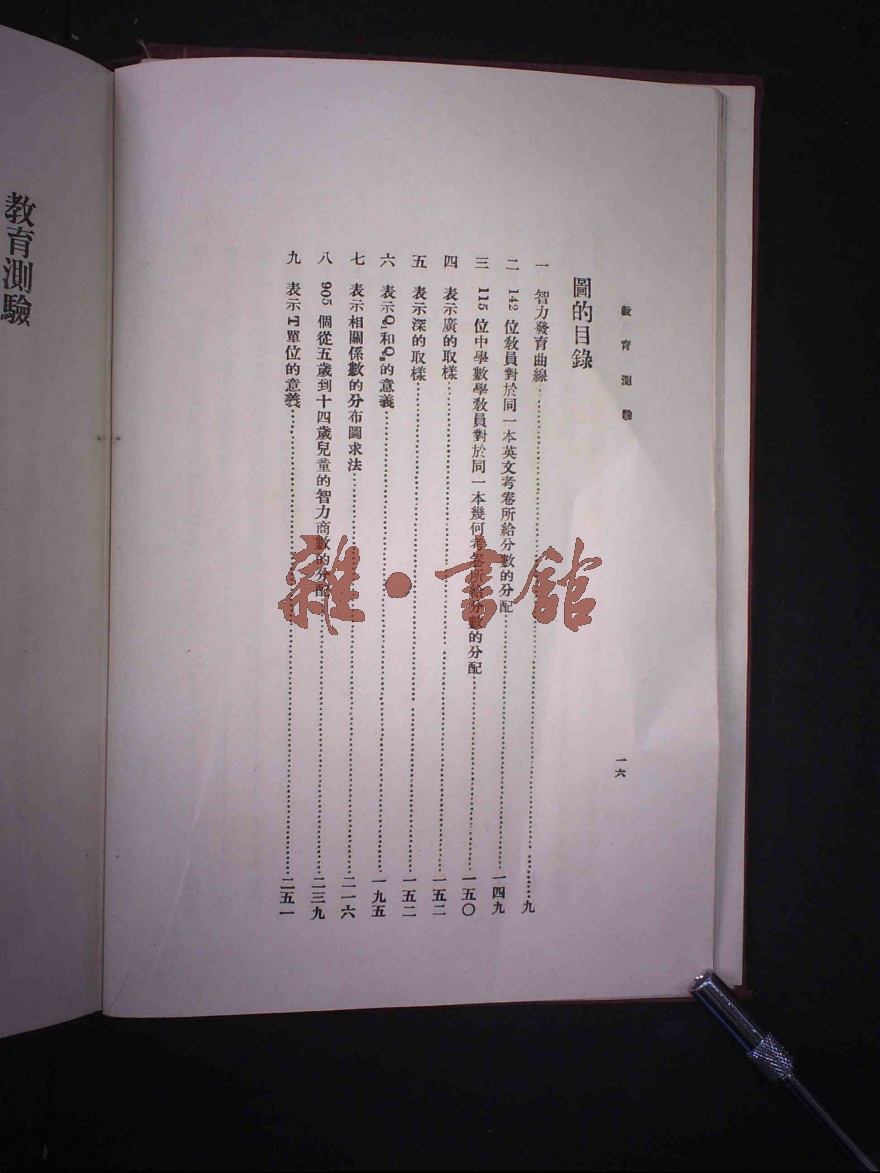 教育測驗
一六
圖的目錄
一 智力發育曲線…………九
二 142 位教員對於同一本英文考卷所給分數的分配…………一四九
三 115 位中學數學教員對於同一本幾何考卷所給分數的分配…………一五〇
四 表示廣的取樣…………一五二
五 表示深的取樣…………一五二
六 表示Q₁和Q₃的意義…………一九五
七 表示相關係數的分布圖求法…………二一六
八 905 個從五歲到十四歲兒童的智力商數的分配…………二三九
九 表示T單位的意義…………二五一
教育測驗
雜·書館